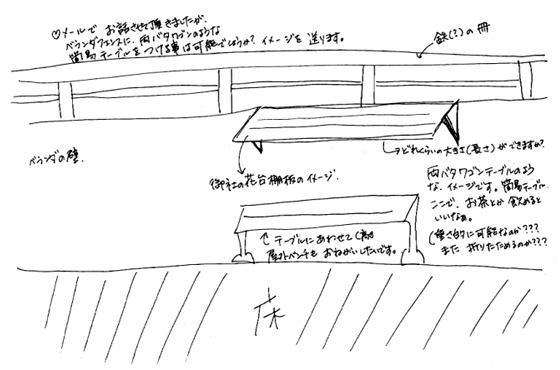 ♡メールで お話させて頂きましたが、
ベランダフェンスに、両バタワゴンのような
簡易テーブルをつける事は可能でしょうか? イメージを送ります。
鉄(?)の冊
ベランダの壁
→どれくらいの大きさ(長さ)ができますか?
御社の花台棚板のイメージ。
両バタワゴンテーブルのよう
な、イメージです。簡易テーブル。
ここで、お茶とか飲めると
いいなぁ。
(強さ的に可能なのか???
また 折りたためるのか???
↑テーブルにあわせて
屋外ベンチも おねがいしたいです。
床